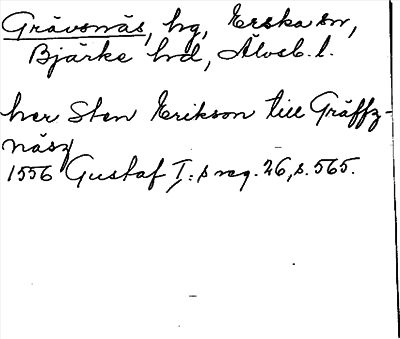 Grävsnäs, hg, Erska sn,
Bjärke hd, Älvsb. l.
her Sten Erikson till Gräffz-
näsz
1556 Gustaf I:s reg. 26, s. 565.